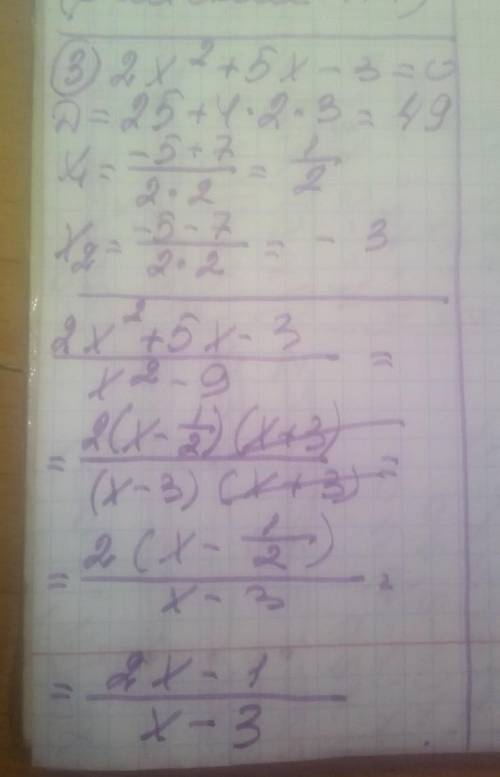 ③ 2x² + 5x - 3 = 0
D = 25 + 4 · 2 · 3 = 49
x₁ = (-5 + 7)/(2 · 2) = 1/2
x₂ = (-5 - 7)/(2 · 2) = - 3
(2x² + 5x - 3)/(x² - 9) =
= (2(x - 1/2)(x + 3))/((x - 3)(x + 3)) =
= (2(x - 1/2))/(x - 3) =
= (2x - 1)/(x - 3)